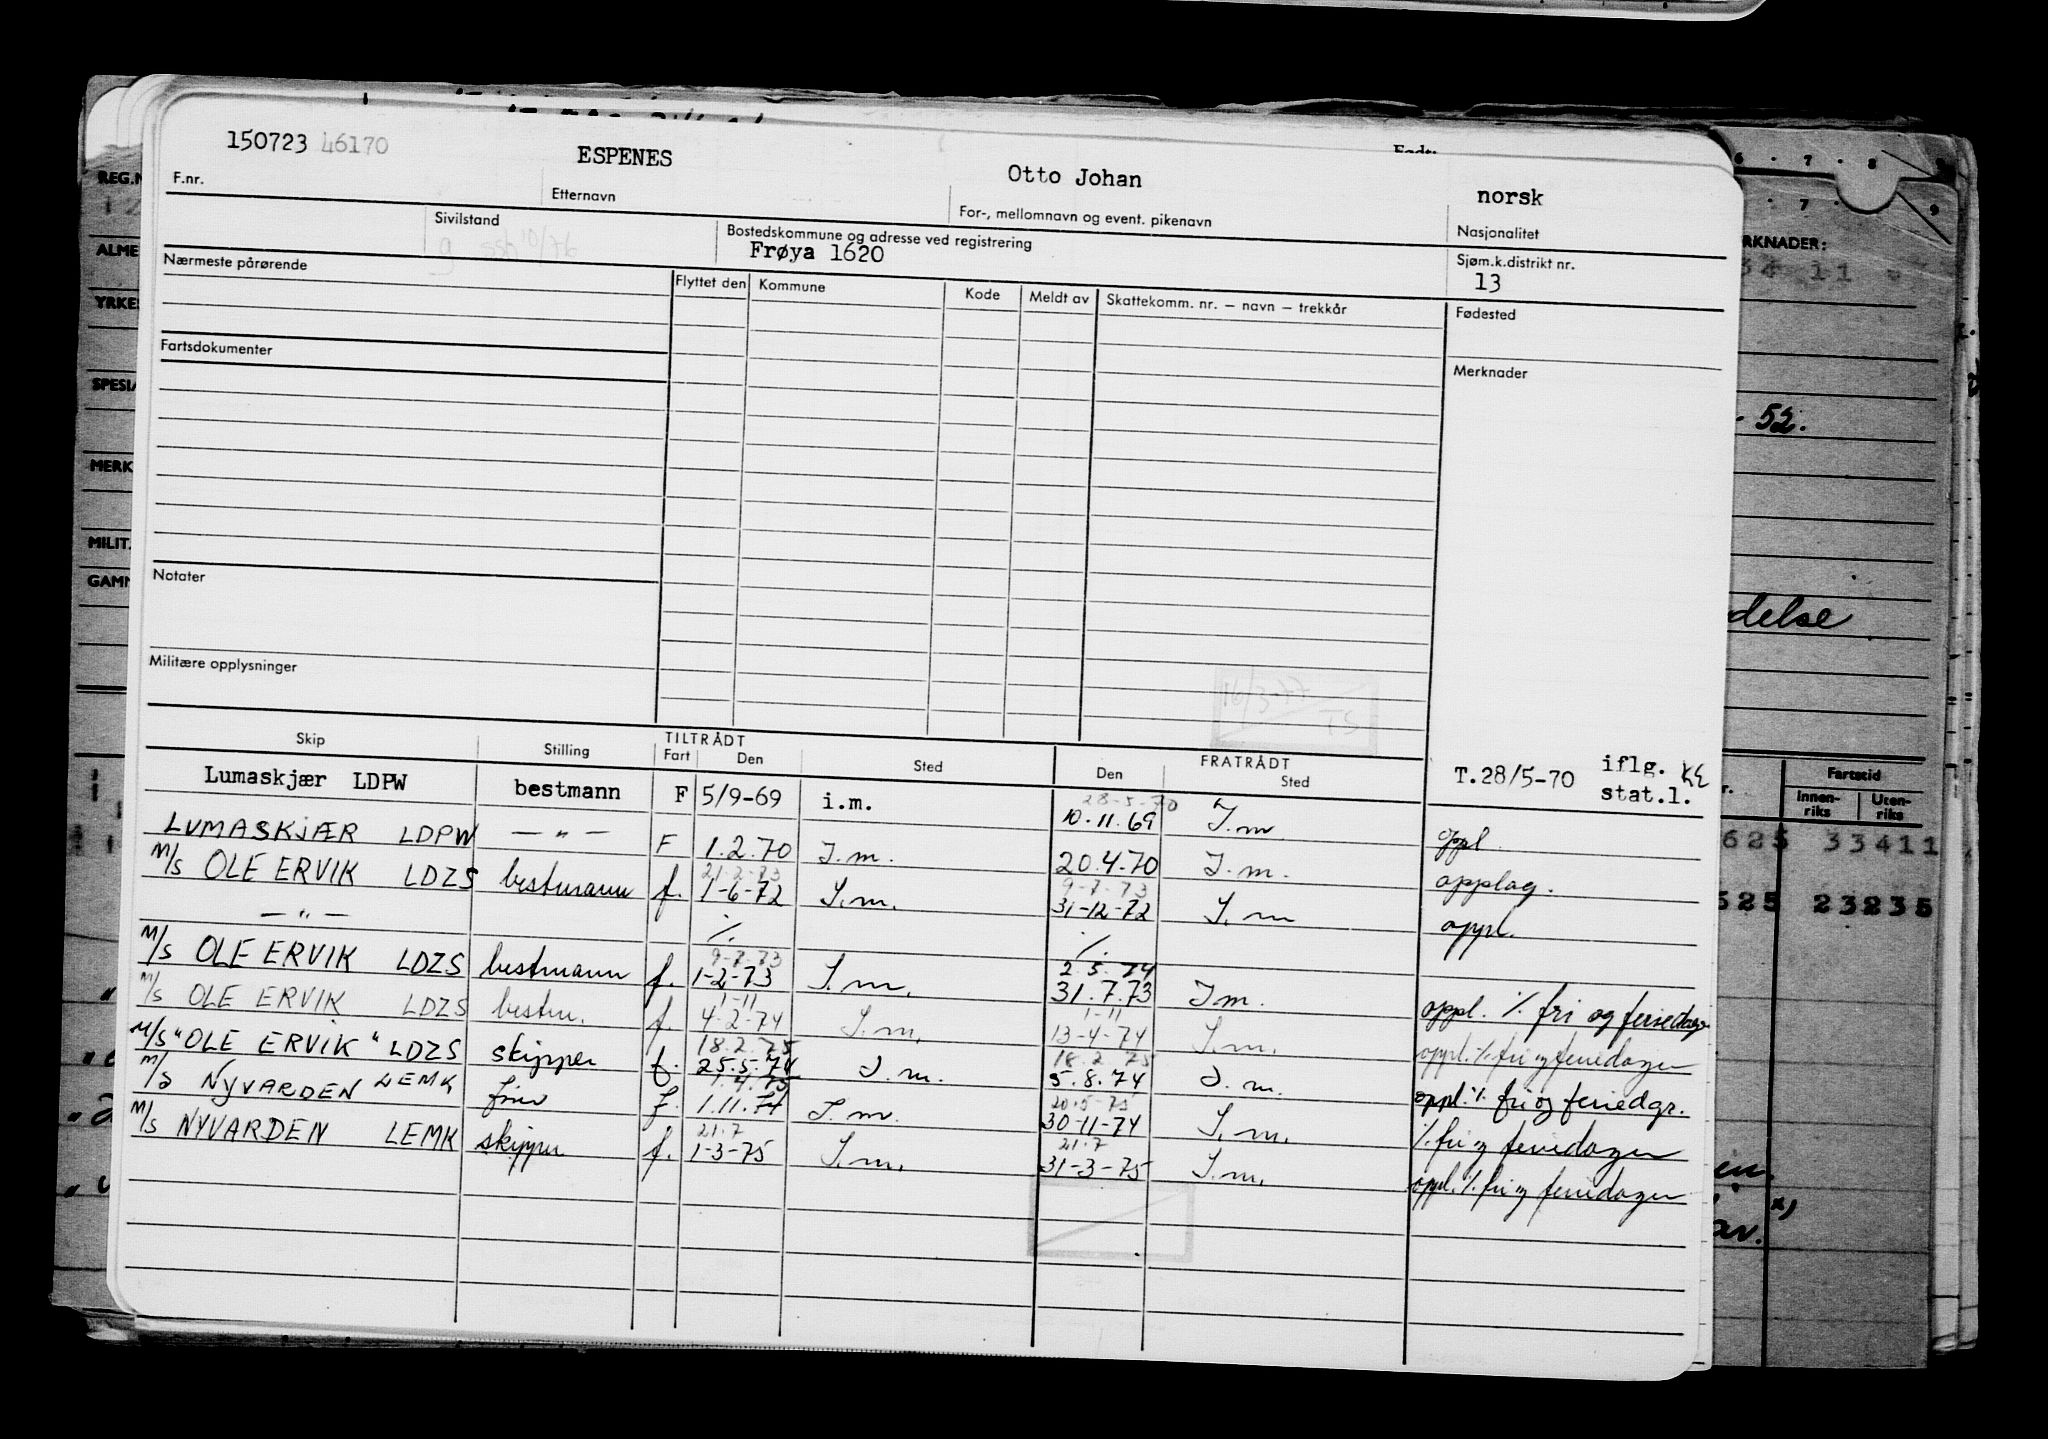 150723 46170 ESPENES Otto Johan norsk
F.nr. Etternavn For-, mellomnavn og event. pikenavn Nasjonalitet
Sivilstand Bostedskommune og adresse ved registrering Sjøm.k.distrikt nr.
g ssb 10/76 Frøya 1620 13
Nærmeste pårørende Flyttet den Kommune Kode Meldt av Skattekomm. nr. – navn – trekkår Fødested
Fartsdokumenter Merknader
Notater
Militære opplysninger
16/3-77
TS
Skip Stilling TILTRÅDT FRATRÅDT
Fart Den Sted Den Sted
Lumaskjær LDPW bestmann F 5/9-69 i.m. 28-5-70 10.11.69 I.m T.28/5-70 iflg. stat.l. KE
LUMASKJÆR LDPW — " — F 1.2.70 I.m. 20.4.70 I.m. oppl.
M/S OLE ERVIK LDZS bestmann f. 21-2-73 1-6-72 I.m. 9-7-73 31-12-72 I.m opplag.
— " — %. %. oppl.
M/S OLE ERVIK LDZS bestmann f. 9-7-73 1-2-73 I.m. 2.5.74 31.7.73 I m. oppl. % fri og feriedager
M/S OLE ERVIK LDZS bestm. f. 1-11 4-2-74 I.m. 1-11 13-4-74 I.m. oppl. % fri og feriedager
M/S "OLE ERVIK" LDZS skipper f. 18.2.75 25.5.74 I.m. 18.2.75 5.8.74 I.m. oppl. % fri og feriedgr.
M/S NYVARDEN LEMK f. 1.4.75 1.11.74 I.m. 20-5-75 30-11-74 I.m. % fri og feriedager
M/S NYVARDEN LEMK skipper f. 21.7 1-3-75 I.m. 21.7 31-3-75 I.m. oppl. % fri og feriedager
REG.N
ALME
YRKES
SPESIA
MERK
MILIT.
GAMM
RKNADER:
34 11
- 52.
delse
Fartstid
Innen-riks Uten-riks
625 33411
625 23235
en.
av. x)